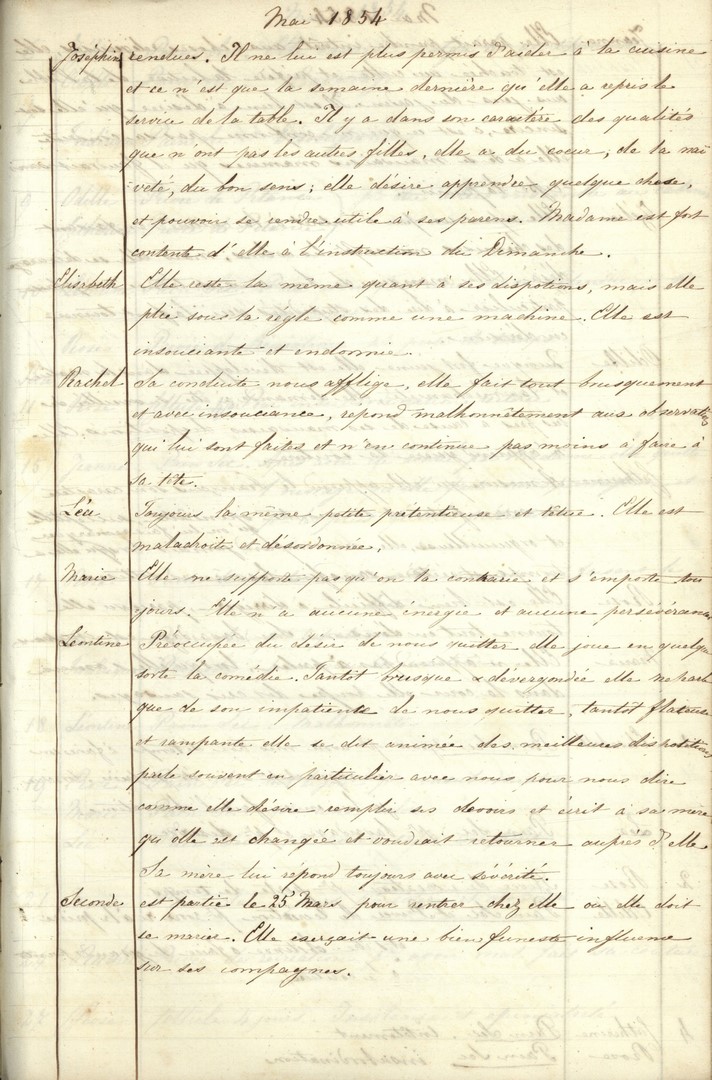 Mai 1854
Joséphine rendues. Il ne lui est plus permis d'aider à la cuisine
et ce n'est que la semaine dernière qu'elle a repris le
service de la table. Il y a dans son caractère des qualités
que n'ont pas les autres filles, elle a du coeur, de la naï
veté, du bon sens; elle désire apprendre quelque chose,
et pouvoir se rendre utile à ses parens. Madame est fort
contente d'elle à l'instruction du Dimanche.
Elisabeth Elle reste la même quant à ses dispotions, mais elle
plie sous la règle comme une machine. Elle est
insouciante et endormie.
Rachel Sa conduite nous afflige, elle fait tout brusquement
et avec insouciance, repond malhonnêtement aux observations
qui lui sont faites et n'en continue pas moins à faire à
sa tête.
Léa Toujours la même petite prétentieuse et têtue. Elle est
maladroite et désordonnée,
Marie Elle ne supporte pas qu'on la contrarie et s'emporte tou
jours. Elle n'a aucune énergie et aucune persévérance
Léontine Préoccupée du désir de nous quitter elle joue en quelque
sorte la comédie. Tantôt brusque & dévergondée elle ne parle
que de son impatience de nous quitter, tantôt flateuse
et rampante elle se dit animée des meilleures dispositions
parle souvent en particulier avec nous pour nous dire
comme elle désire remplir ses devoirs et écrit à sa mère
qu'elle est changée et voudrait retourner auprès d'elle
Sa mère lui répond toujours avec sévérité.
Seconde est partie le 25 Mars pour rentrer chez elle où elle doit
se marier. Elle exerçait une bien funeste influence
sur ses compagnes.